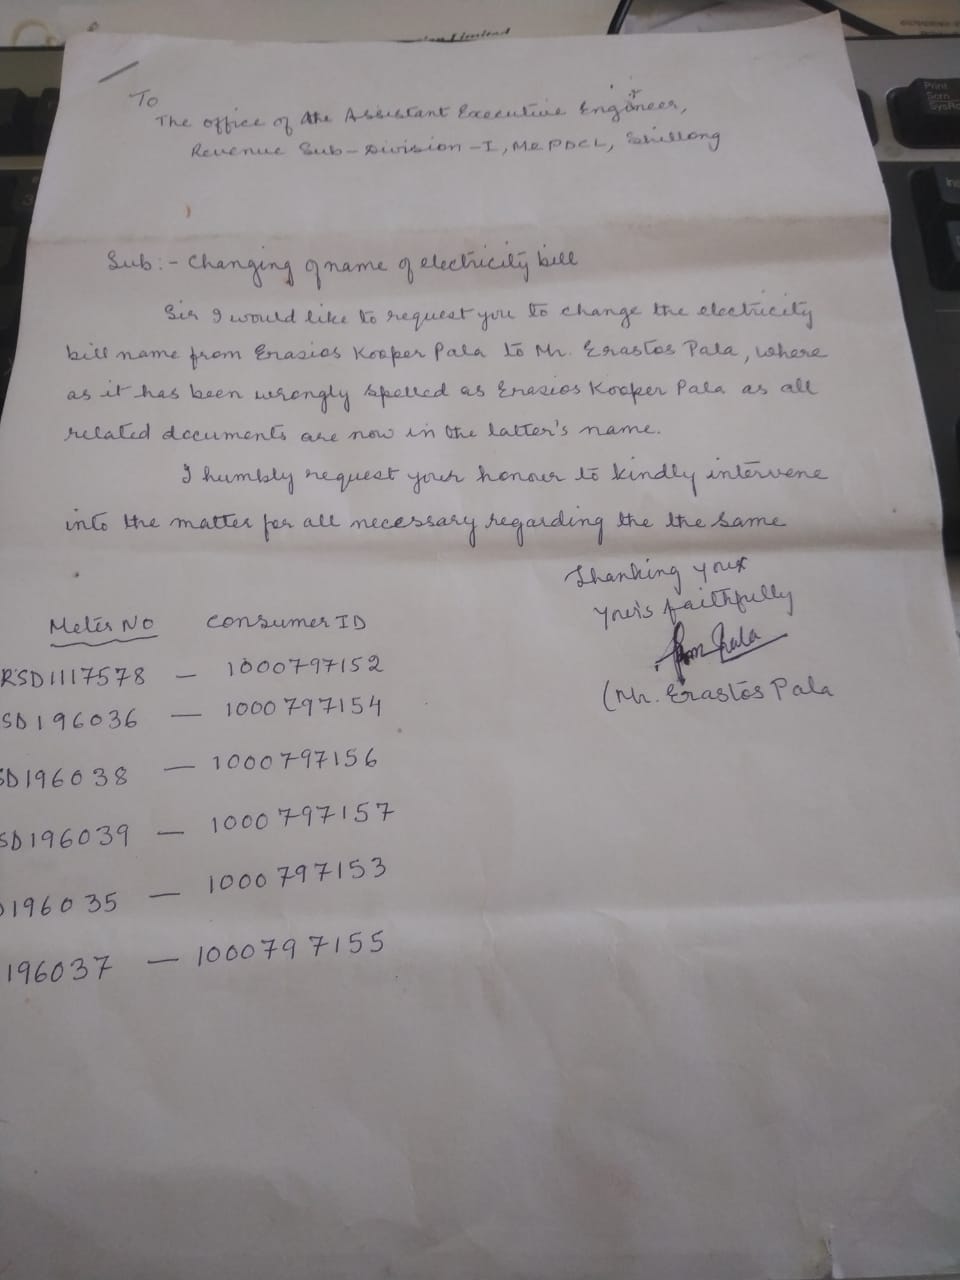 To
The office of the Assistant Executive Engineer,
Revenue Sub-Division-I, MePDCL, Shillong
Sub:- Changing of name of electricity bill
Sir I would like to request you to change the electricity
bill name from Erasios Kooper Pala to Mr. Erastos Pala, where
as it has been wrongly spelled as Erasios Kooper Pala as all
related documents are now in the latter's name.
I humbly request your honour to kindly intervene
into the matter for all necessary regarding the the same
Thanking you
Your's faithfully
Pala
(Mr. Erastos Pala
Meter No Consumer ID
RSD1117578 — 1000797152
SD196036 — 1000797154
SD196038 — 1000797156
SD196039 — 1000797157
196035 — 1000797153
196037 — 1000797155
Print
Scrn
SysRq